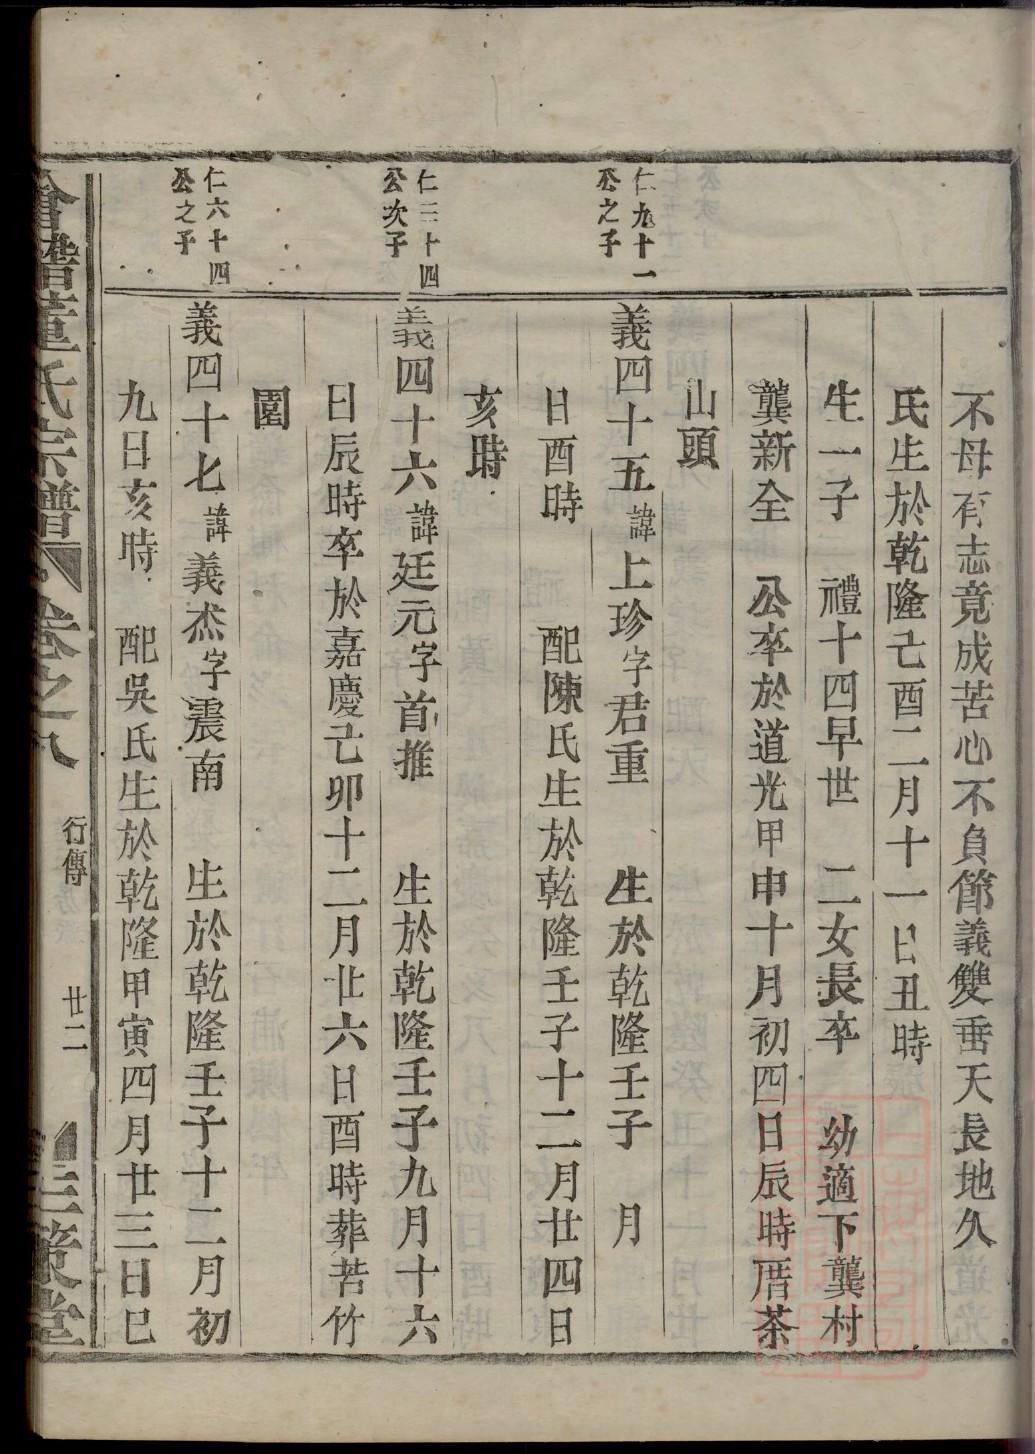 不毋有志竟成苦心不負節義雙垂天長地久
氏生於乾隆己酉二月十一日丑時
生一子　禮十四早世　二女長卒　幼適下龔村
龔新全　公卒於道光甲申十月初四日辰時厝茶
山頭
仁九十一
公之子
義四十五諱上珍字君重　生於乾隆壬子　月
日酉時　配陳氏生於乾隆壬子十二月廿四日
亥時
仁三十四
公次子
義四十六諱廷元字首推　生於乾隆壬子九月十六
日辰時卒於嘉慶己卯十二月廿六日酉時葬苦竹
園
仁六十四
公之子
義四十七諱義杰字震南　生於乾隆壬子十二月初
九日亥時　配吳氏生於乾隆甲寅四月廿三日巳
會稽董氏宗譜　卷之八　行傳　廿二　三策堂